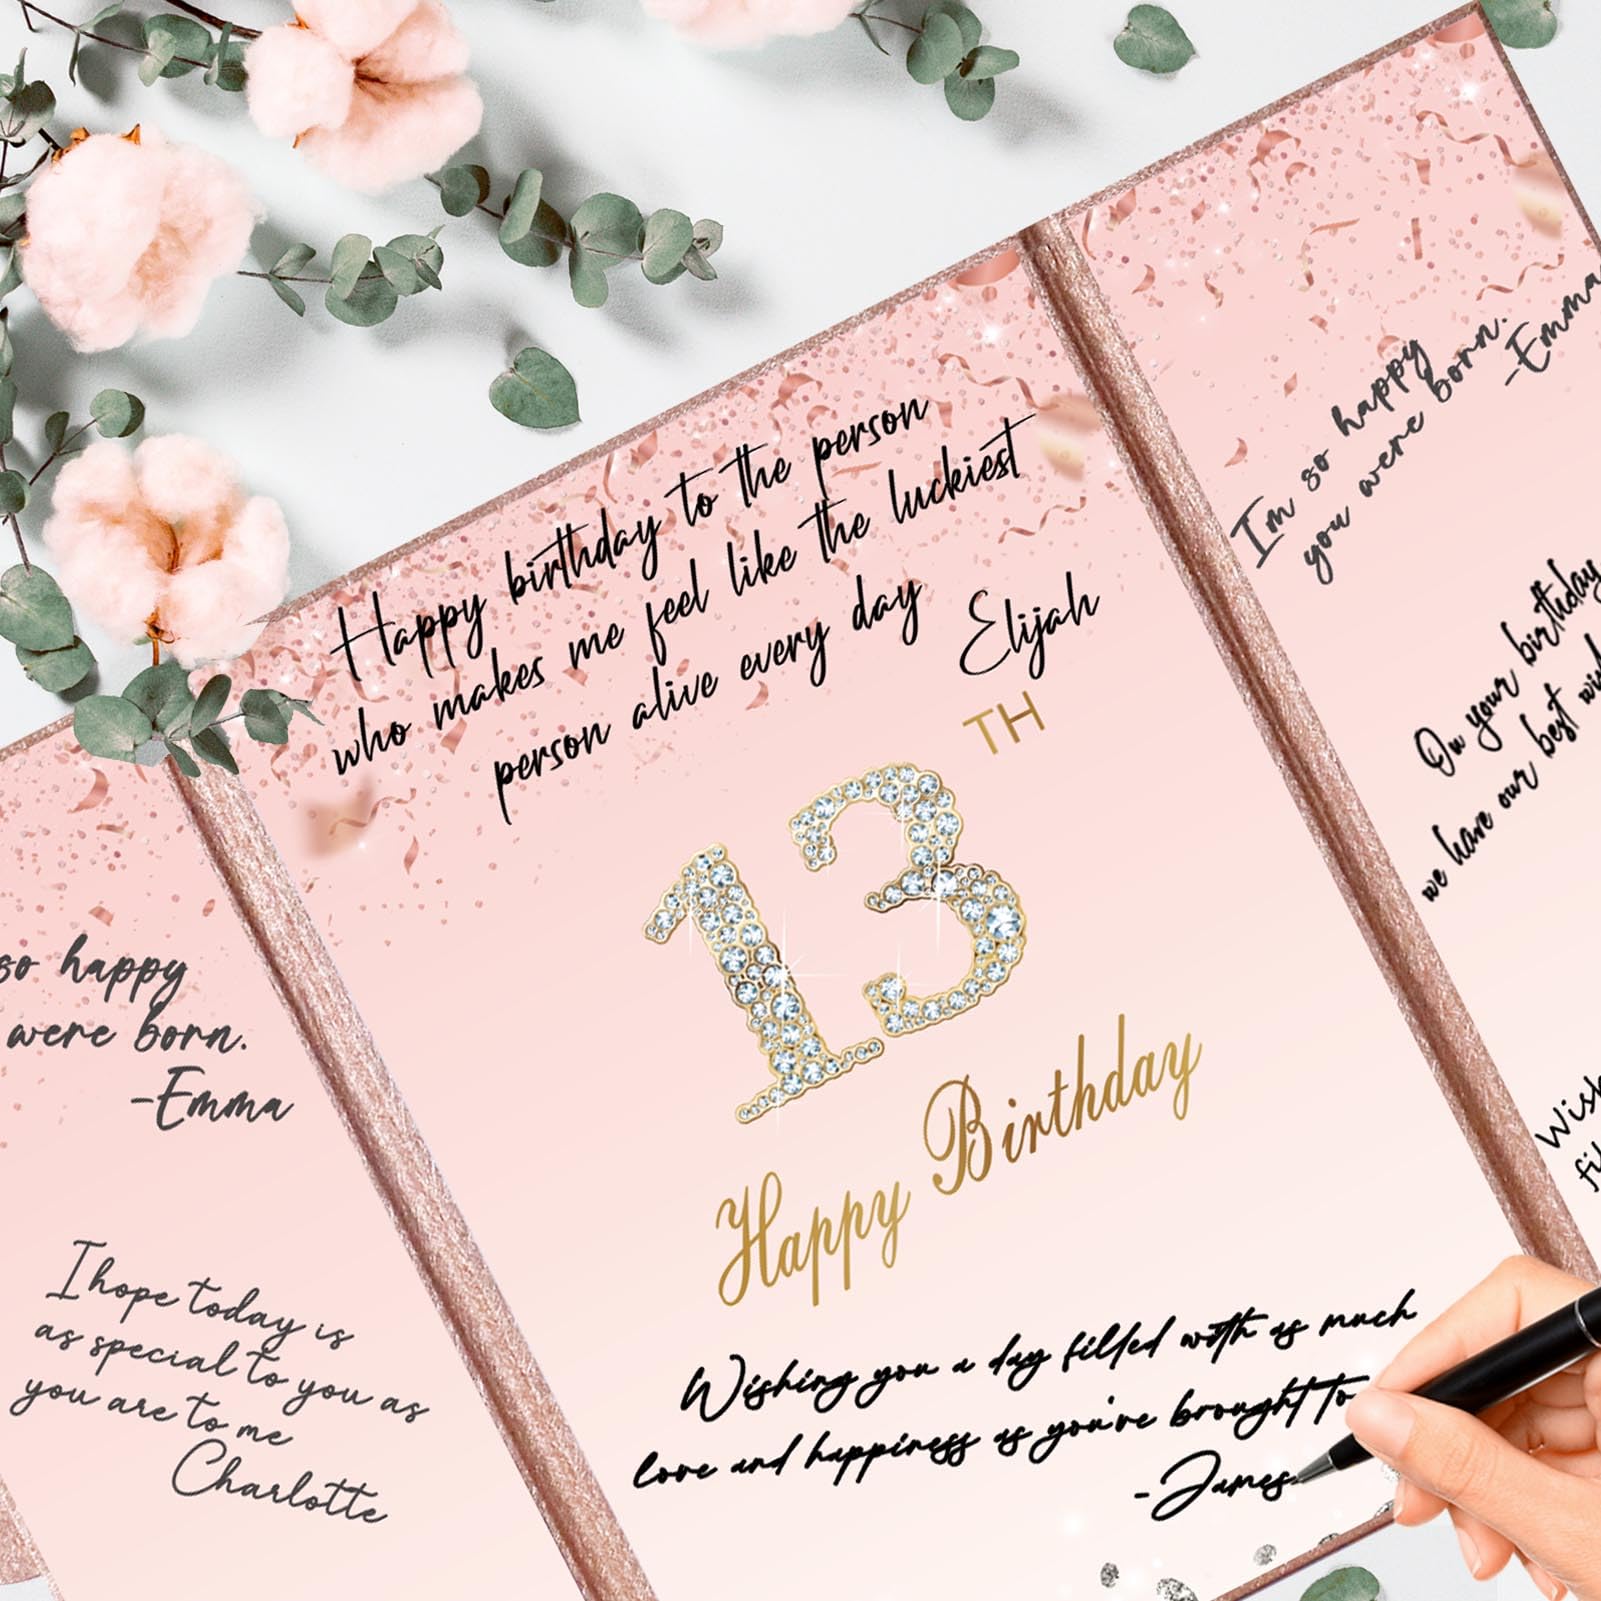 Happy birthday to the person
who makes me feel like the luckiest
person alive every day
Elijah
TH
13
Happy Birthday
Wishing you a day filled with as much
love and happiness as you're brought to
-James
so happy
were born.
-Emma
I hope today is
as special to you as
you are to me
Charlotte
I'm so happy
you were born.
-Emma
On your birthday
we have our best